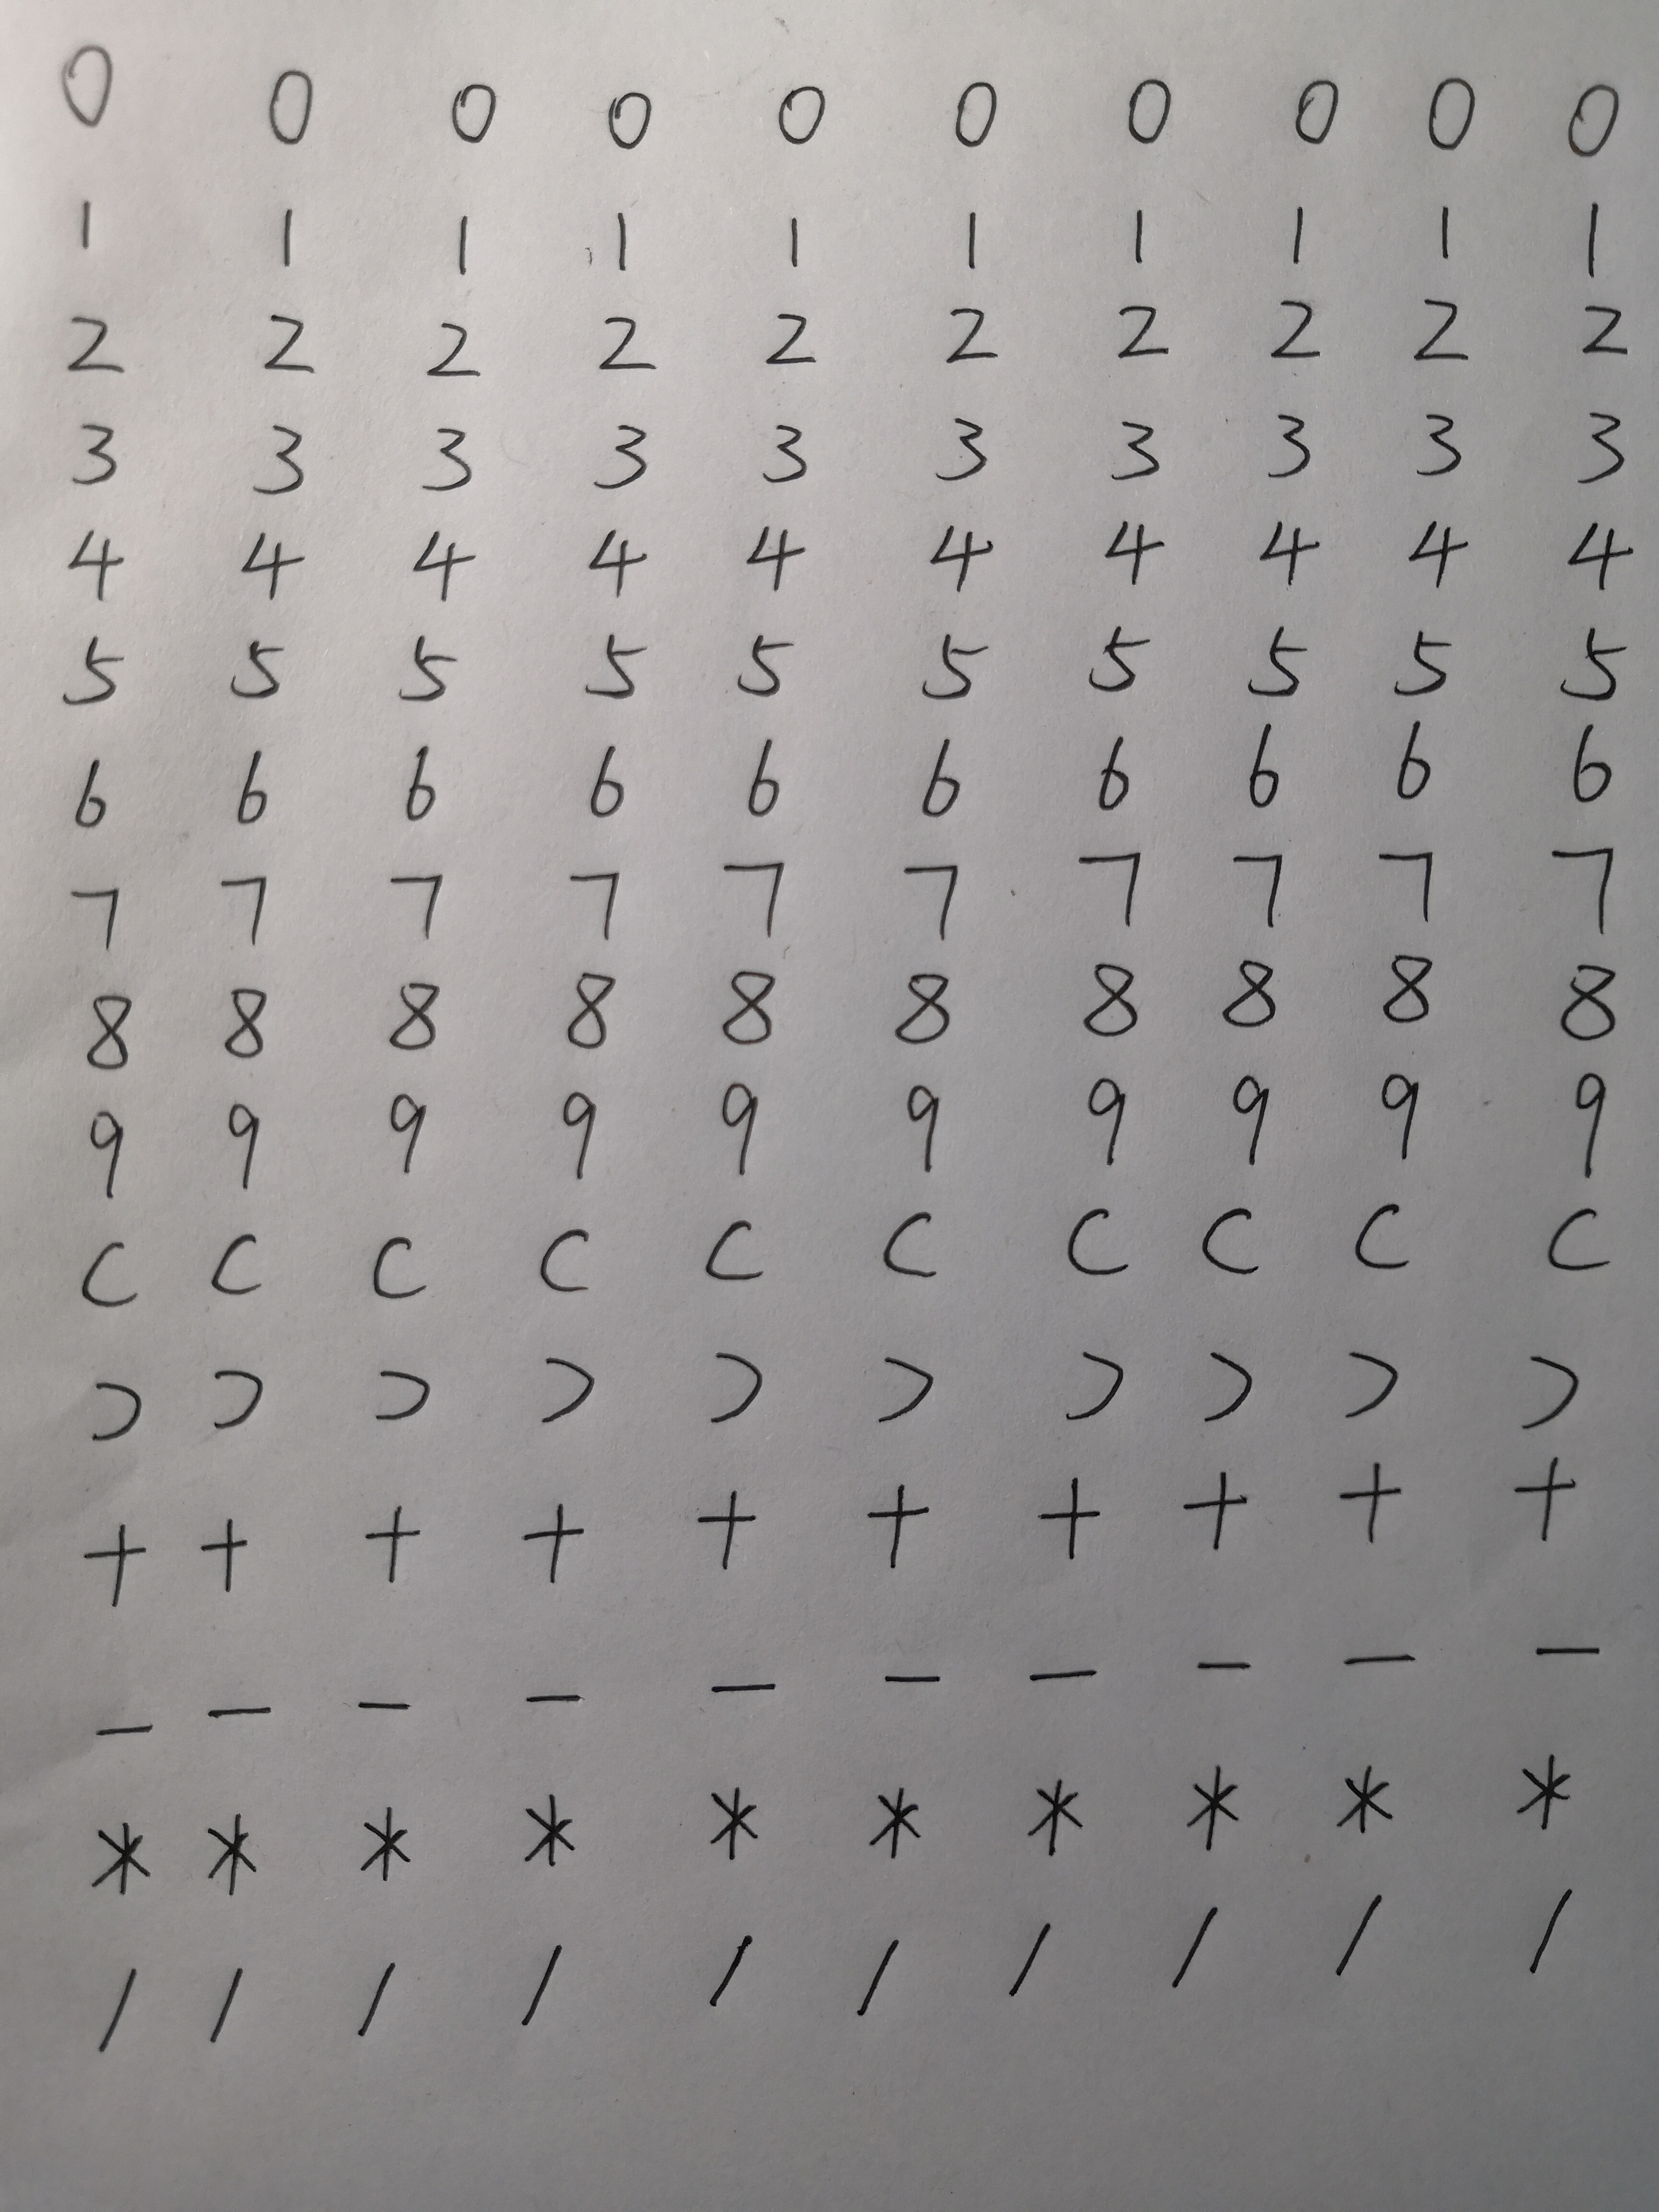 0 0 0 0 0 0 0 0 0 0
1 1 1 1 1 1 1 1 1 1
2 2 2 2 2 2 2 2 2 2
3 3 3 3 3 3 3 3 3 3
4 4 4 4 4 4 4 4 4 4
5 5 5 5 5 5 5 5 5 5
6 6 6 6 6 6 6 6 6 6
7 7 7 7 7 7 7 7 7 7
8 8 8 8 8 8 8 8 8 8
9 9 9 9 9 9 9 9 9 9
( ( ( ( ( ( ( ( ( (
) ) ) ) ) ) ) ) ) )
+ + + + + + + + + +
- - - - - - - - - -
* * * * * * * * * *
/ / / / / / / / / /